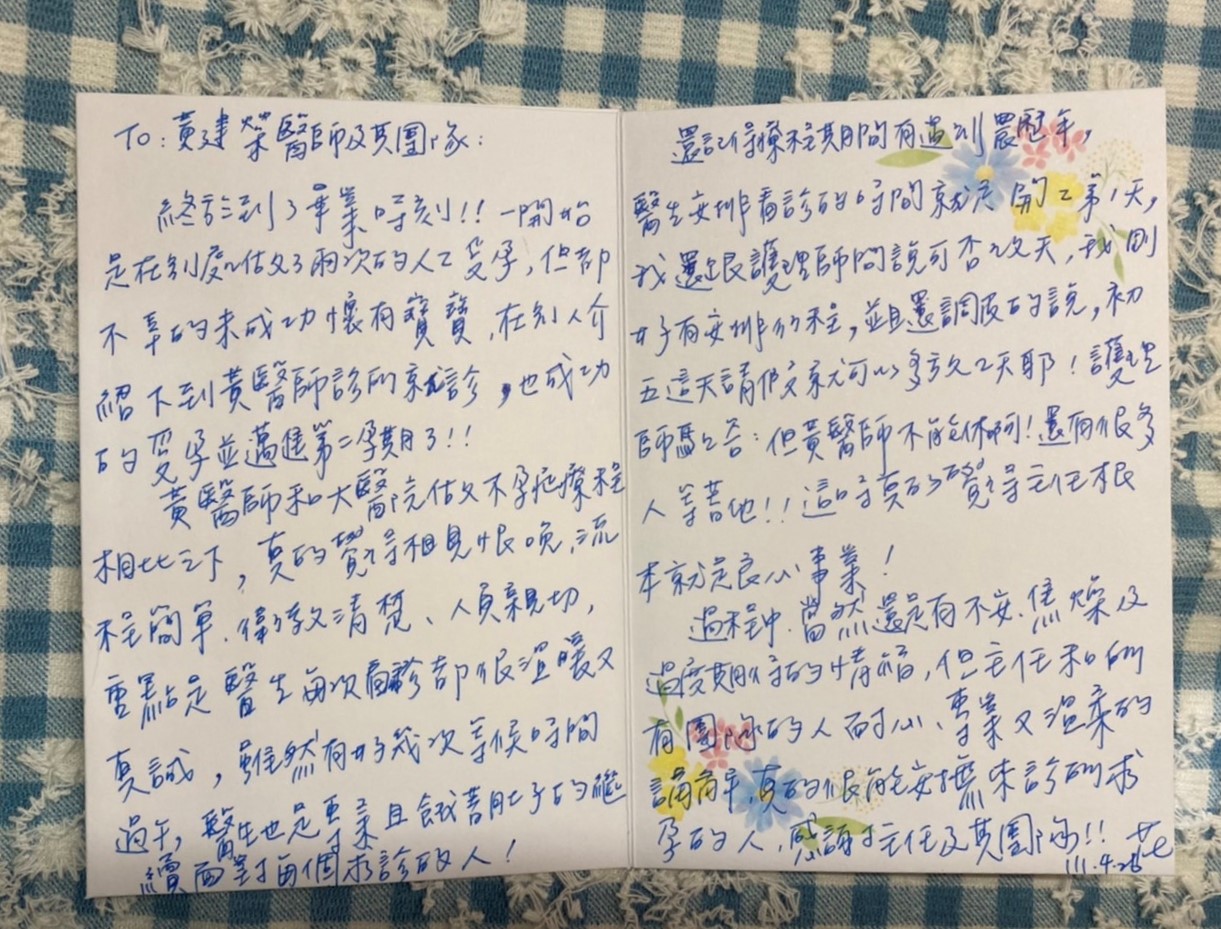 TO: 黃建榮醫師及其團隊:
終於到了畢業時刻!! 一開始
是在別處做了兩次的人工受孕,但都
不幸的未成功懷有寶寶,在別人介
紹下到黃醫師診所就診,也成功
的受孕並邁進第二孕期了!!
黃醫師和大醫院做不孕症療程
相比之下,真的覺得相見恨晚,流
程簡單、衛教清楚、人員親切,
重點是醫生每次看診都很溫暖又
真誠,雖然有好幾次等候時間
過午,醫生也是專業且餓著肚子的繼
續面對每個求診的人!
還記得療程期間有遇到農曆年,
醫生安排看診的時間就是開工第1天,
我還跟護理師問說可否改天,我剛
好有安排行程,並且還調皮的說,初
五這天請假就可以多放2天耶!護理
師馬上答:但黃醫師不能休啊!還有很多
人等著他!!這時真的覺得主任根
本就是良心事業!
過程中,當然還是有不安、焦燥及
過度期待的情緒,但主任和所
有團隊的人耐心、專業又溫柔的
講解,真的很能安撫來診所求
孕的人,感謝主任及其團隊!!
111.4.26